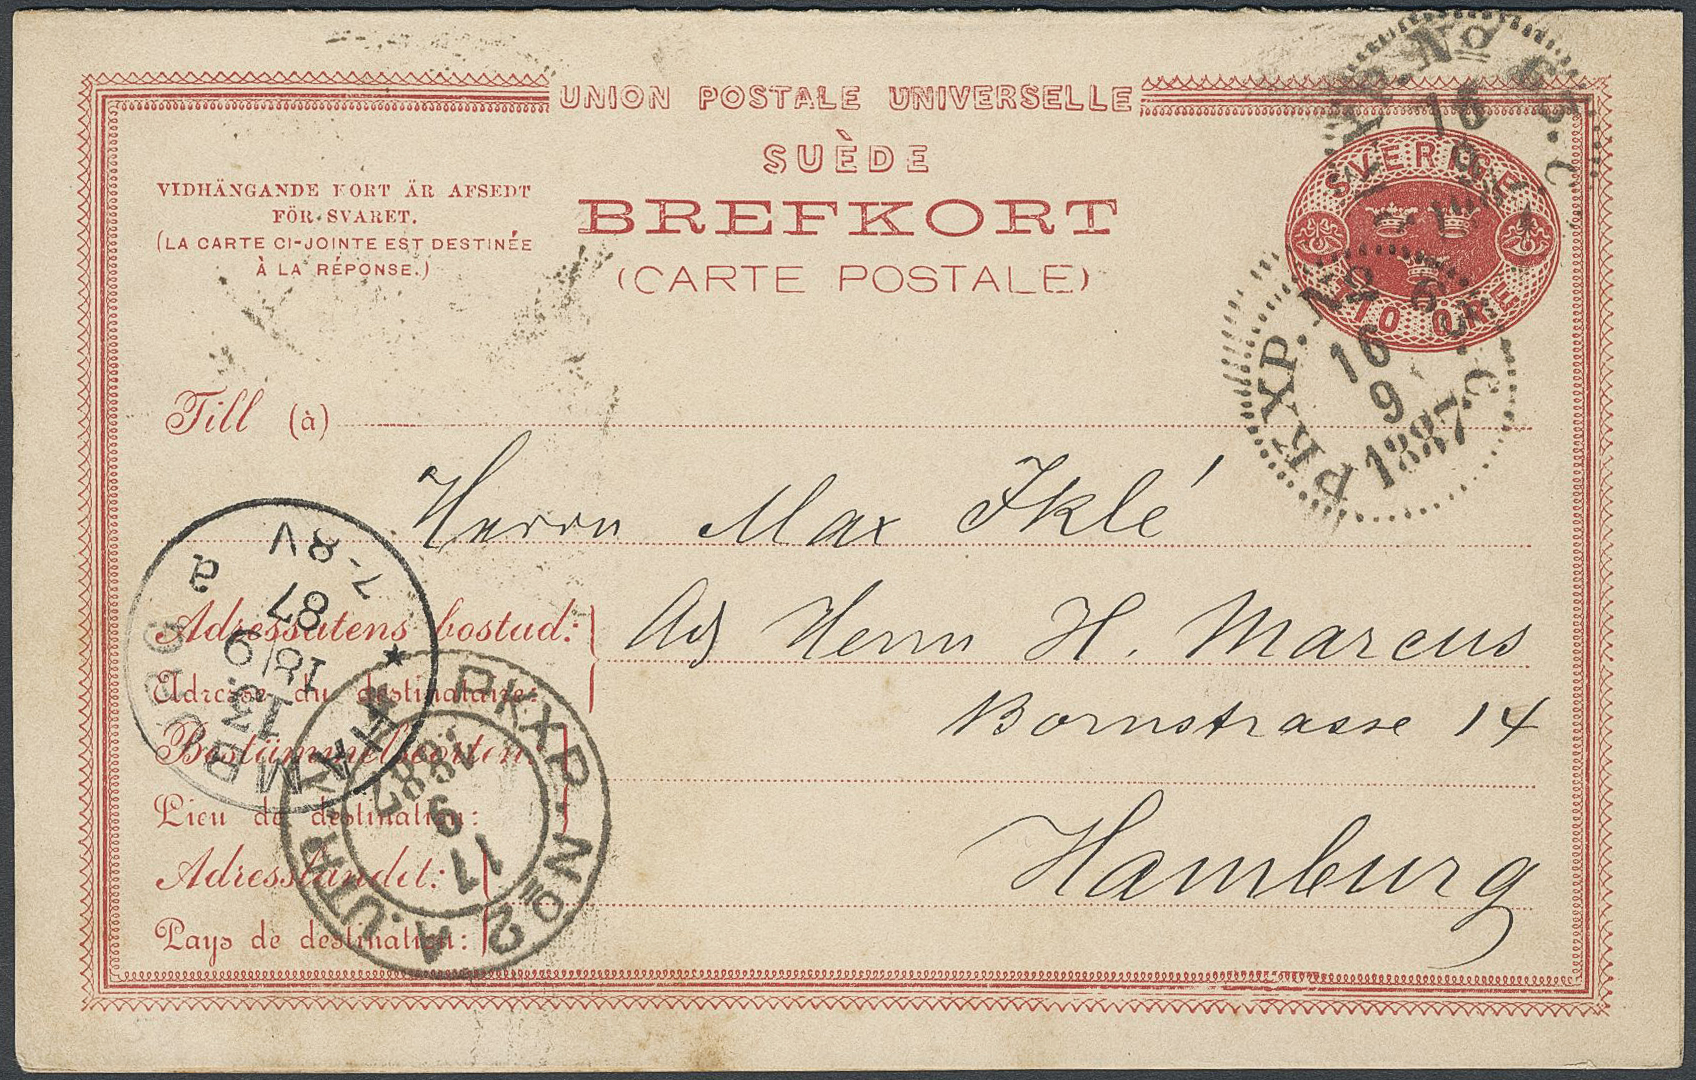 UNION POSTALE UNIVERSELLE
SUÈDE
BREFKORT
(CARTE POSTALE)
VIDHÄNGANDE KORT ÄR AFSEDT
FÖR SVARET.
(LA CARTE CI-JOINTE EST DESTINÉE
À LA RÉPONSE.)
SVERIGE
TIO ÖRE
PKXP. No
16
9
PKXP. No 6
16
9
1887
Till (à)
Herrn Max Iklé
Adressatens bostad:
Adresse du destinataire:
Ad Herrn H. Marcus
Bornstrasse 14
Bestämmelseorten:
Lieu de destination:
Hamburg
Adresslandet:
Pays de destination:
HAMBURG
a
7-8V
87
18/9
13.
PKXP. No 2 A. UTR
17
9
1887